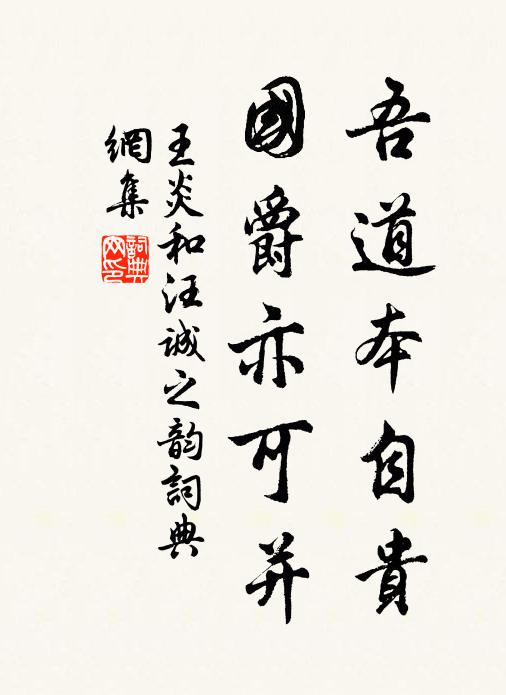 吾道本自貴
國爵亦可并
王炎和汪誠之韵詞典
網集
詞典
网印